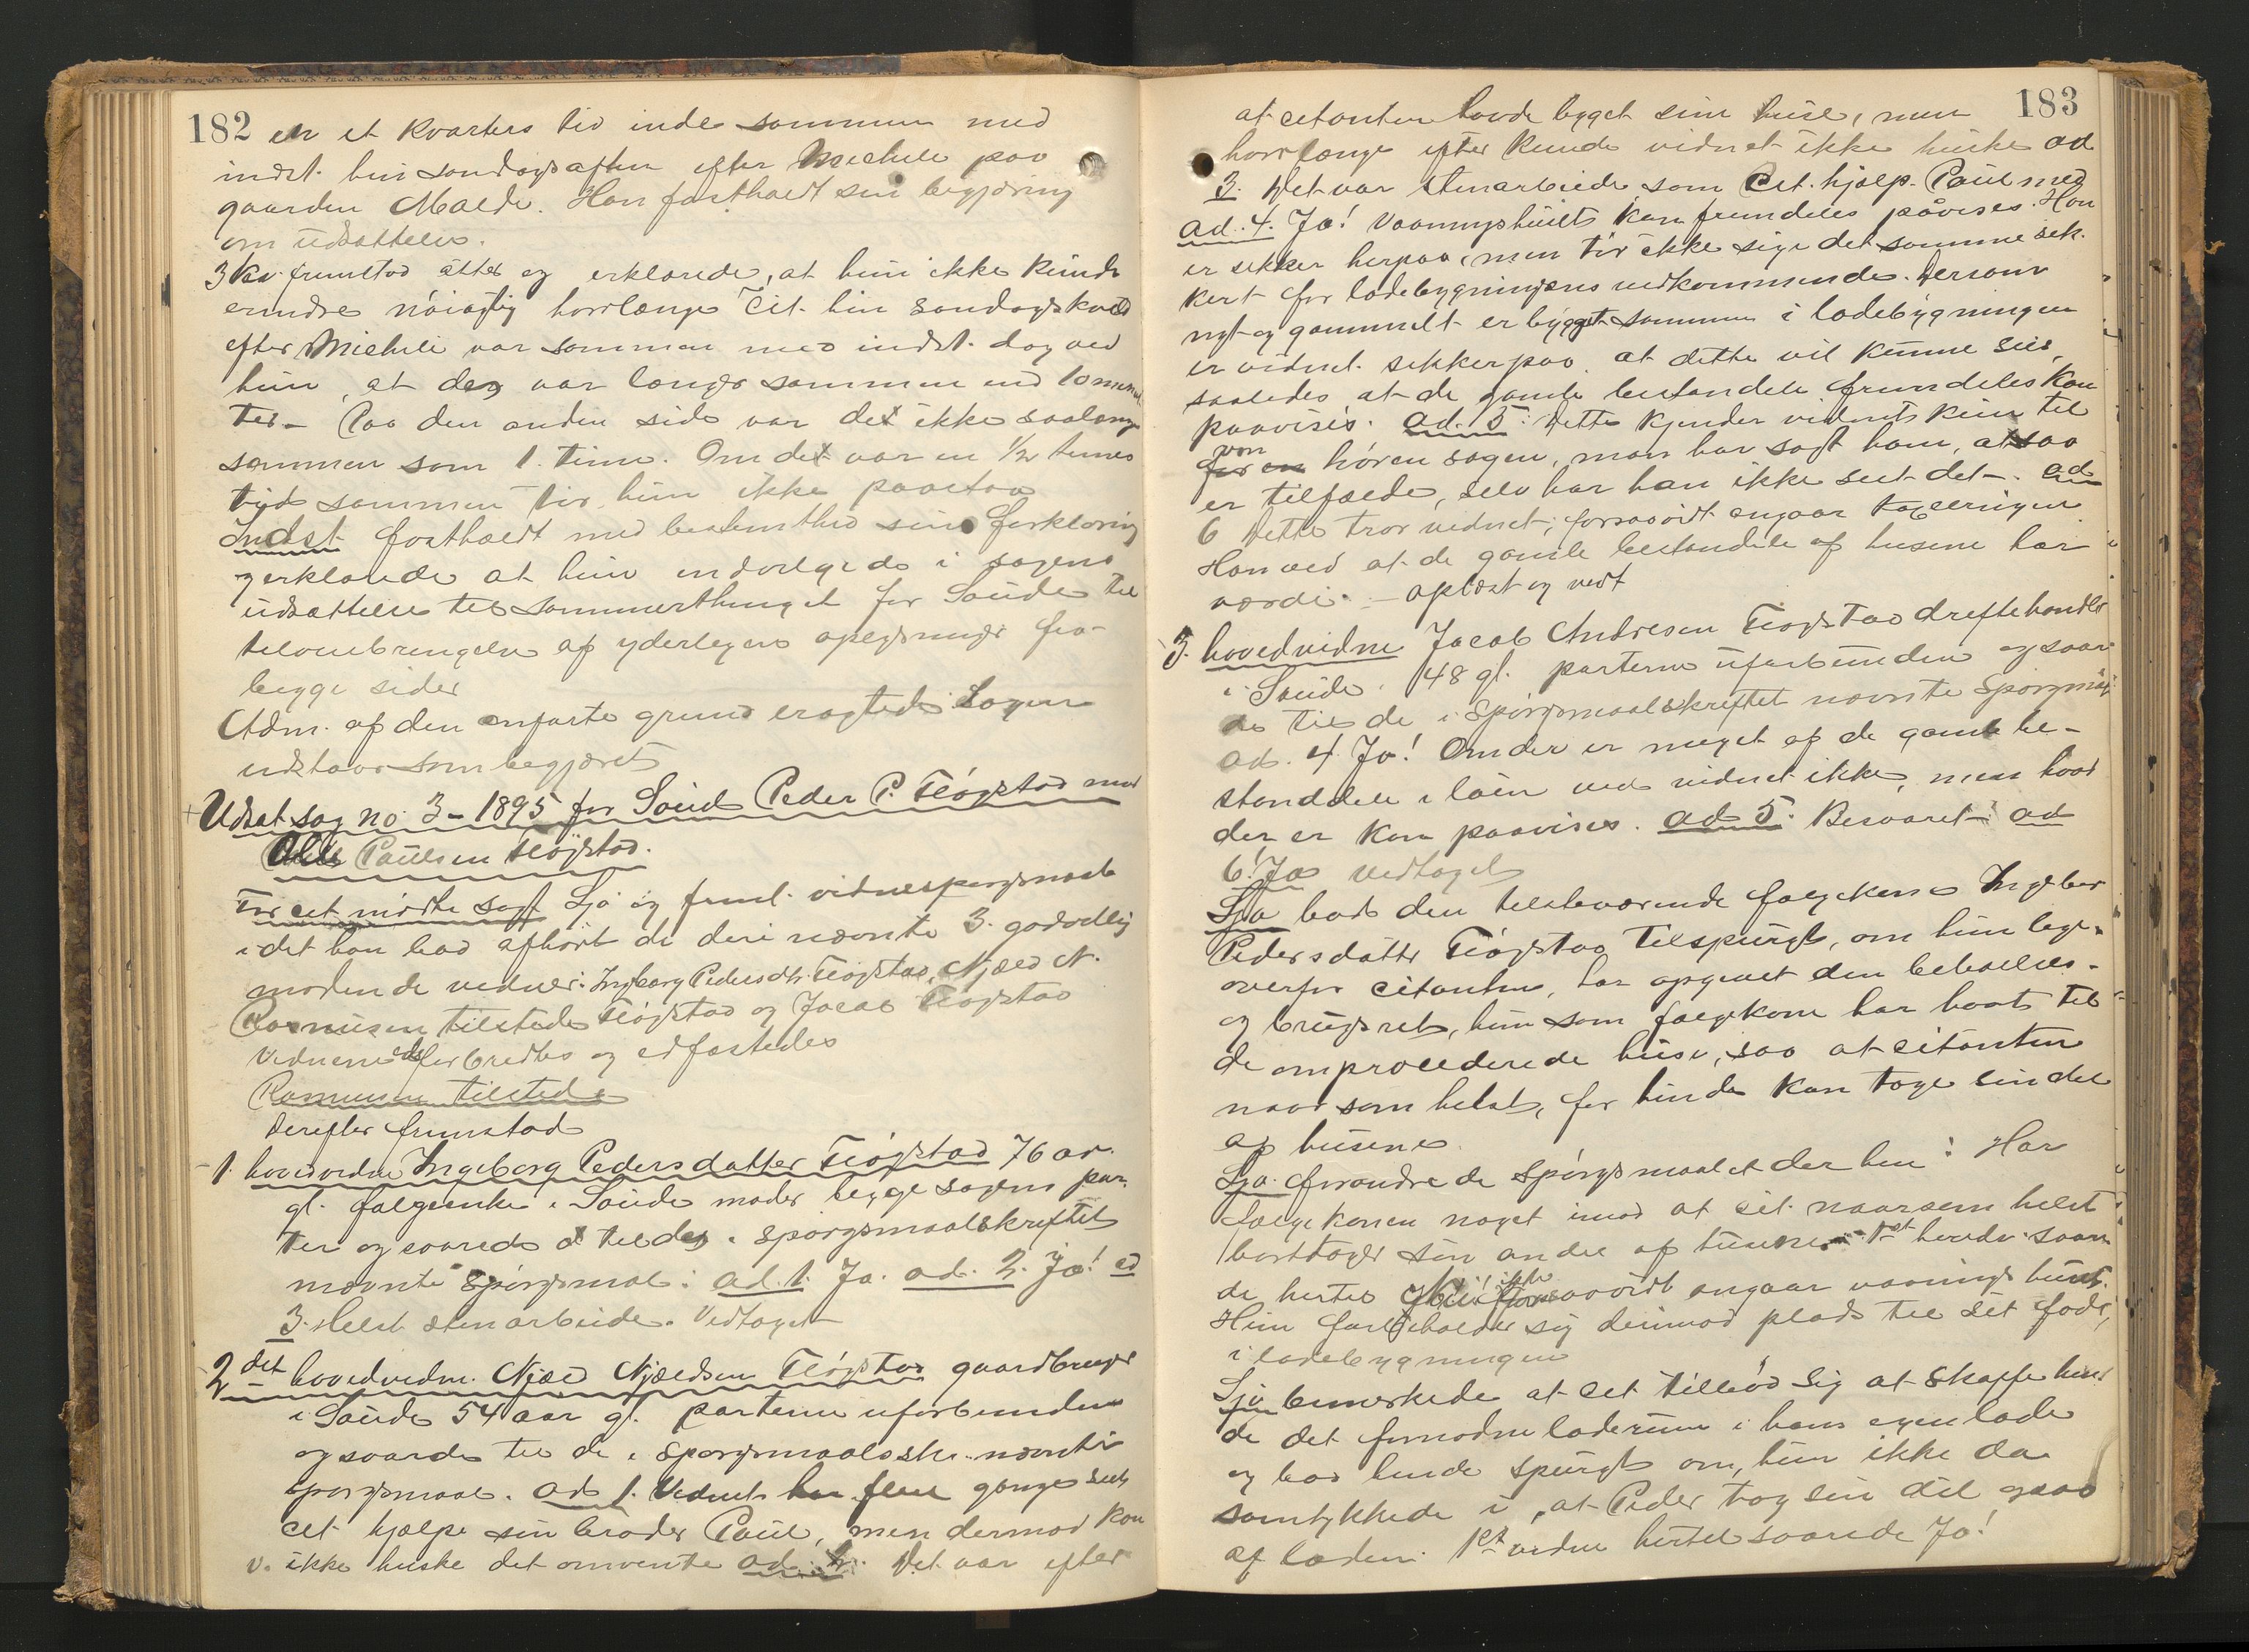 182 en et Kvarters tid inde sammen med
indst. hin søndagsaften efter Micheli paa
gaarden Malde. Han fastholdt sin begjæring
om udsættelse.
3 Kv. fremstod atter og erklærede, at hun ikke kunde
erindre nøiagtig hvorlænge Cit. hin søndagskvæld
efter Micheli var sammen med indst. dog ved
hun, at de var længer sammen end 10 minut
ter – Paa den anden side var de ikke saalænge
sammen som 1. time. Om de var en 1/2 times
tid sammen tør hun ikke paastaa
Indst. fastholdt med bestemthed sin forklaring
og erklærede at hun indvilgede i sagens
udsættelse til sommerthinget for Soude til
tilveiebringelse af yderligere oplysninger fra
begge sider
Adm. af den anførte grund eragtede Sagen
udstaar som begjæret
Udsat sag no. 3 – 1895 for Soude Peder P. Fløgstad mod
Paulsen Fløgstad.
For cit mødte sagf. Sjo og freml. vidnespørgsmaal
idet han bad afhørt de deri nævnte 3. godvillig
mødende vidner: Ingborg Pedersdtr. Fløgstad, Njæd N.
Rasmusen tilstede Fløgstad og Jacob Fløgstad
Vidnerne edsforbredtes og edfæstedes
Rasmusen tilstede
Derefter fremstod
1. hovedvidne Ingeborg Pedersdatter Fløgstad 76 ar.
gl. følgeenke i Soude moder begge sagens par-
ter og svarede til de i spørgsmaalskriftet
nævnte spørgsmal: ad. 1. Ja. ad. 2. Ja! ad
3. Helst stenarbeide. Vedtaget
2det hovedvidne Njæd Njædsen Fløgstad gaardbruger
i Soude 54 aar gl. parterne uforbunden
og svarede til de i spørgsmaalsskr. nævnte
spørgsmaal. ad 1. Vidnet har flere gange seet
cit hjælpe sin broder Paul, men dermod kan
v. ikke huske det omvente ad. 2. Det var efter
183
at citanten havde bygget sine huse, men
hvorlænge efter kunde vidnet ikke huske ad
3. Det var stenarbeide som Cit. hjalp Paul med
ad. 4. Ja! Vaaningshusets kan fremdeles påvises. Han
er sikker herpaa, men tør ikke sige det samme sik-
kert for ladebygningens vedkommende. Dersom
nyt og gammelt er bygget sammen i ladebygningen
er vidnet sikker paa at dette vil kunne sees,
saaledes at de gamle bestandele fremdeles kan
paavises. ad. 5. Dette kjender vidnet kun til
von
for en høren sagen, man har sagt ham, at saa
er tilfælde, selv har han ikke seet det –. ad
6 Dette tror vidnet, forsavidt angaar taxeringen
Han ved at de gamle bestandele af husene har
værdi. – oplæst og vedt
3. hovedvidne Jacob Andresen Fløgstad driftehandler
i Soude. 48 gl. parterne uforbunden og svare-
de til de i spørgsmaalskriftet nævnte Spørgsmaal
ad. 4 Ja! Om der er meget af de gamle be-
standdele i løen ved vidnet ikke, men hvad
der er kan paavises. ad 5. Besvaret: ad
6. Ja Vedtaget
Sjo bad den tilstedværende følgekone Ingebor
Pedersdatter Fløgstad tilspurgt, om hun lige-
overfor citanten, har opgivet den beboelses-
og brugsret, hun som følgekone har havt til
de omprocederede huse, saa at citanten
naar som helst, for hende kan tage sin del
af husene.
Sjo. forandrede Spørgsmaalet der hen: Har
følgekonen noget imod at cit. naarsom helst
borttager sin andel af husene. 1st hovedv. svare-
de hertil ikke forsaavidt angaar vaaningshuset.
Hun forbeholder sig derimod plads til sit foder
i ladebygningen
Sjo bemærkede at cit tilbød sig at skaffe hen
de det fornødne laderum i hans egen lade
og bad hende spurgt om, hun ikke da
samtykkede i, at Peder tog sin del ogsaa
af laden. 1st vidne hertil svarede Ja!